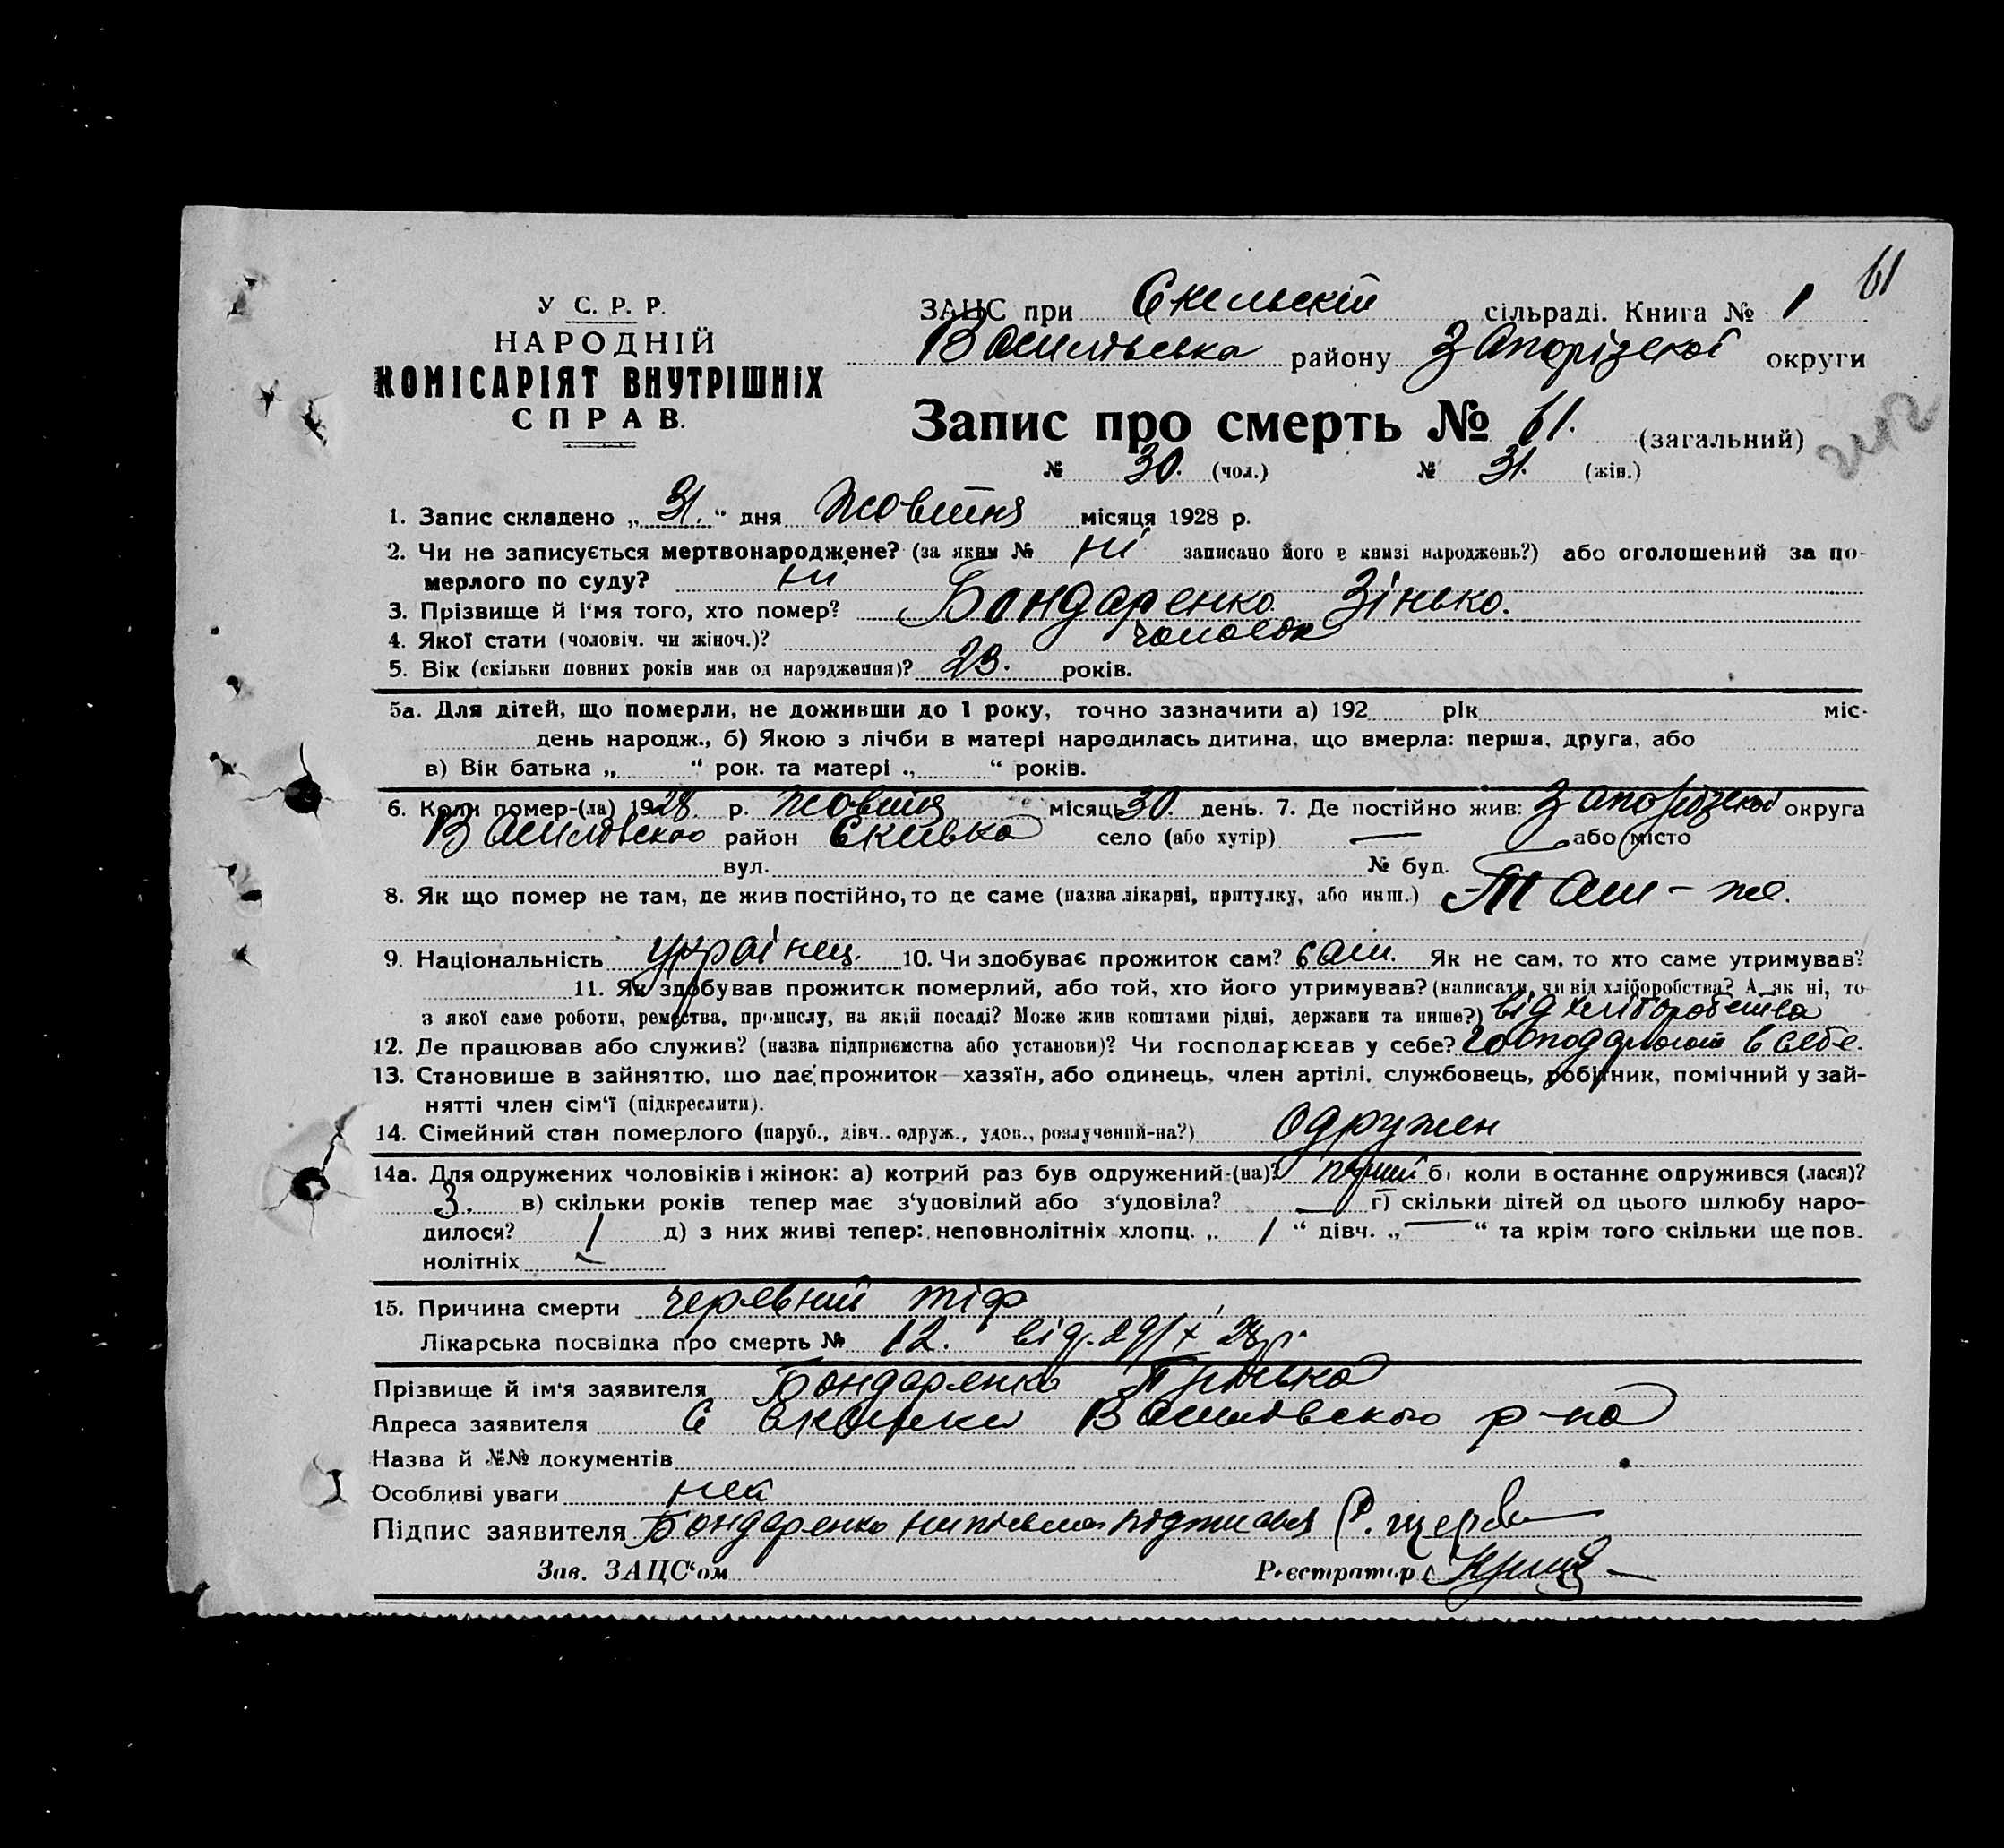 61
У С. Р. Р.
НАРОДНІЙ
КОМІСАРІЯТ ВНУТРІШНІХ
СПРАВ.
ЗАЦС при Скельскій сільраді. Книга № 1
Василівська району Запорізской округи
Запис про смерть № 61. (загальний)
№ 30. (чол.) № 31. (жін.)
1. Запис складено „ 31. “ дня Жовтня місяця 1928 р.
2. Чи не записується мертвонароджене? (за яким № ні записано його в книзі народжень?) або оголошений за по-
мерлого по суду? ні
3. Прізвище й і'мя того, хто помер? Бондаренко Зінько.
4. Якої стати (чоловіч. чи жіноч.)? чоловік
5. Вік (скільки повних років мав од народження)? 23. років.
5а. Для дітей, що померли, не доживши до 1 року, точно зазначити а) 192 рік міс-
день народж., б) Якою з лічби в матері народилась дитина, що вмерла: перша, друга, або
в) Вік батька „ “ рок. та матері „ “ років.
6. Коли помер-(ла) 1928. р. Жовтня місяць 30. день. 7. Де постійно жив: Запорізской округа
Василівского район Скивка село (або хутір) — або місто
вул. № буд.
8. Як що помер не там, де жив постійно, то де саме (назва лікарні, притулку, або инш.) Там-же.
9. Національність українец. 10. Чи здобуває прожиток сам? сам. Як не сам, то хто саме утримував?
11. Як здобував прожиток померлий, або той, хто його утримував? (написати, чи від хліборобства? А як ні, то
з якої саме роботи, ремества, промислу, на якій посаді? Може жив коштами рідні, держави та инше?) від хліборобства
12. Де працював або служив? (назва підприємства або установи)? Чи господарював у себе? в себе.
13. Становише в зайняттю, що дає прожиток—хазяїн, або одинець, член артілі, службовець, робітник, помічний у зай-
нятті член сім'ї (підкреслити).
14. Сімейний стан померлого (паруб., дівч.. одруж., удов., розлучений-на?) Одружен
14а. Для одружених чоловіків і жінок: а) котрий раз був одружений-(на)? перший б) коли востаннє одружився (лася)?
3. в) скільки років тепер має з'уповілий або з'удовіла? — г) скільки дітей од цього шлюбу наро-
дилося? 1 д) з них живі тепер: неповнолітніх хлопц. „ 1 “ дівч. „ — “ та крім того скільки ще пов.
нолітніх
15. Причина смерти черевний тіф
Лікарська посвідка про смерть № 12. від. 29/X 28р.
Прізвище й ім'я заявителя Бондаренко
Адреса заявителя с Василівского р-на
Назва й №№ документів
Особливі уваги
Підпис заявителя Бондаренко
Зав. ЗАЦС'ом Реєстратор